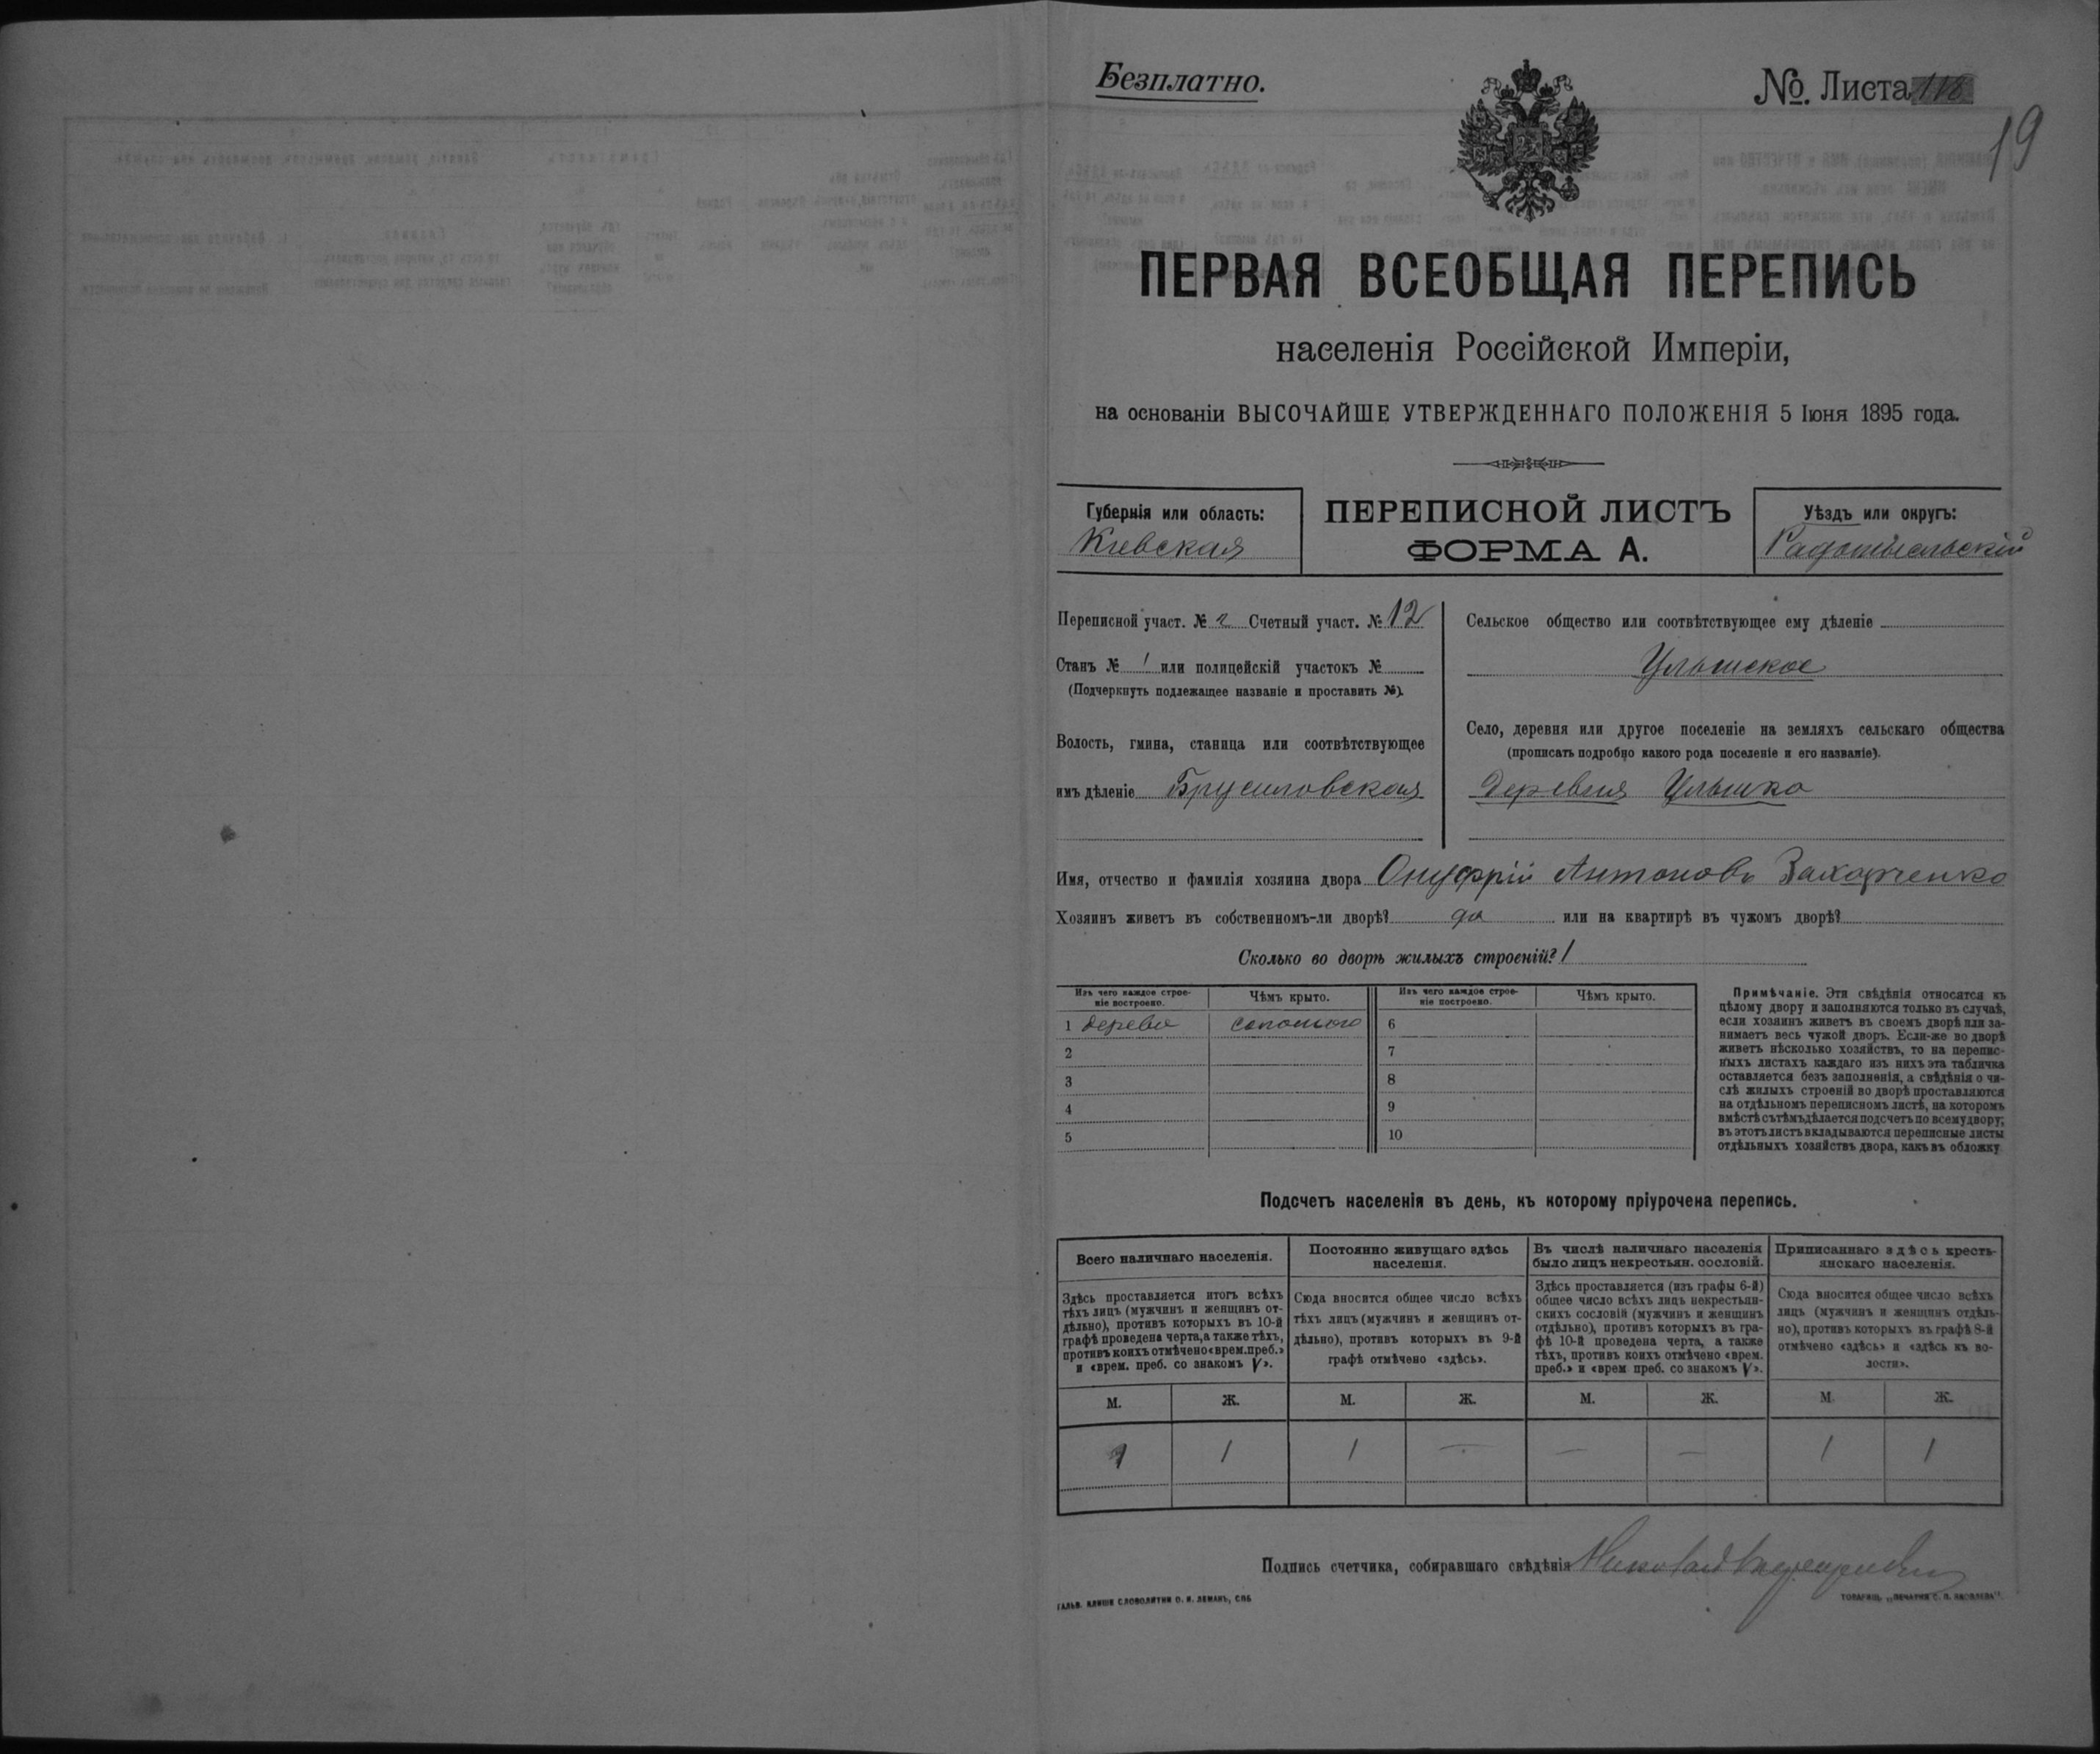 Безплатно.
№. Листа 118
19
ПЕРВАЯ ВСЕОБЩАЯ ПЕРЕПИСЬ
населенія Россійской Имперіи,
на основаніи ВЫСОЧАЙШЕ УТВЕРЖДЕННАГО ПОЛОЖЕНІЯ 5 Іюня 1895 года.
Губернія или область:
Киевская
ПЕРЕПИСНОЙ ЛИСТЪ
ФОРМА А.
Уѣздъ или округъ:
Радомысльскій
Переписной участ. № 2 Счетный участ. № 12
Станъ № 1 или полицейскій участокъ №
(Подчеркнуть подлежащее названіе и проставить №).
Волость, гмина, станица или соотвѣтствующее
имъ дѣленіе Брусиловская
Сельское общество или соотвѣтствующее ему дѣленіе
Ульшское
Село, деревня или другое поселеніе на земляхъ сельскаго общества
(прописать подробно какого рода поселеніе и его названіе).
Деревня Ульшка
Имя, отчество и фамилія хозяина двора Онуфрій Антоновъ Захарченко
Хозяинъ живетъ въ собственномъ-ли дворѣ? да или на квартирѣ въ чужомъ дворѣ?
Сколько во дворѣ жилыхъ строеній? 1
Изъ чего каждое строе-
ніе построено.
Чѣмъ крыто.
Изъ чего каждое строе-
ніе построено.
Чѣмъ крыто.
1 дерева соломою 6
2 7
3 8
4 9
5 10
Примѣчаніе. Эти свѣдѣнія относятся къ
цѣлому двору и заполняются только въ случаѣ,
если хозяинъ живетъ въ своемъ дворѣ или за-
нимаетъ весь чужой дворъ. Если-же во дворѣ
живетъ нѣсколько хозяйствъ, то на перепис-
ныхъ листахъ каждаго изъ нихъ эта табличка
оставляется безъ заполненія, а свѣдѣнія о чи-
слѣ жилыхъ строеній во дворѣ проставляются
на отдѣльномъ переписномъ листѣ, на которомъ
вмѣстѣ съ тѣмъ дѣлается подсчетъ по всему двору;
въ этотъ листъ вкладываются переписные листы
отдѣльныхъ хозяйствъ двора, какъ въ обложку
Подсчетъ населенія въ день, къ которому пріурочена перепись.
Всего наличнаго населенія.
Здѣсь проставляется итогъ всѣхъ
тѣхъ лицъ (мужчинъ и женщинъ от-
дѣльно), противъ которыхъ въ 10-й
графѣ проведена черта, а также тѣхъ,
противъ коихъ отмѣчено «врем. преб.»
и «врем. преб. со знакомъ V».
Постоянно живущаго здѣсь
населенія.
Сюда вносится общее число всѣхъ
тѣхъ лицъ (мужчинъ и женщинъ от-
дѣльно), противъ которыхъ въ 9-й
графѣ отмѣчено «здѣсь».
Въ числѣ наличнаго населенія
было лицъ некрестьян. сословій.
Здѣсь проставляется (изъ графы 6-й)
общее число всѣхъ лицъ некрестьян-
скихъ сословій (мужчинъ и женщинъ
отдѣльно), противъ которыхъ въ гра-
фѣ 10-й проведена черта, а также
тѣхъ, противъ коихъ отмѣчено «врем.
преб.» и «врем преб. со знакомъ V».
Приписаннаго здѣсь кресть-
янскаго населенія.
Сюда вносится общее число всѣхъ
лицъ (мужчинъ и женщинъ отдѣль-
но), противъ которыхъ въ графѣ 8-й
отмѣчено «здѣсь» и «здѣсь къ во-
лости».
М. Ж. М. Ж. М. Ж. М. Ж.
1 1 1 — — — 1 1
Подпись счетчика, собиравшаго свѣдѣнія Николай
ГАЛЬВ. КЛИШЕ СЛОВОЛИТНИ О. И. ЛЕМАНЪ, СПБ
ТОВАРИЩ. „ПЕЧАТНЯ С. П. ЯКОВЛЕВА".